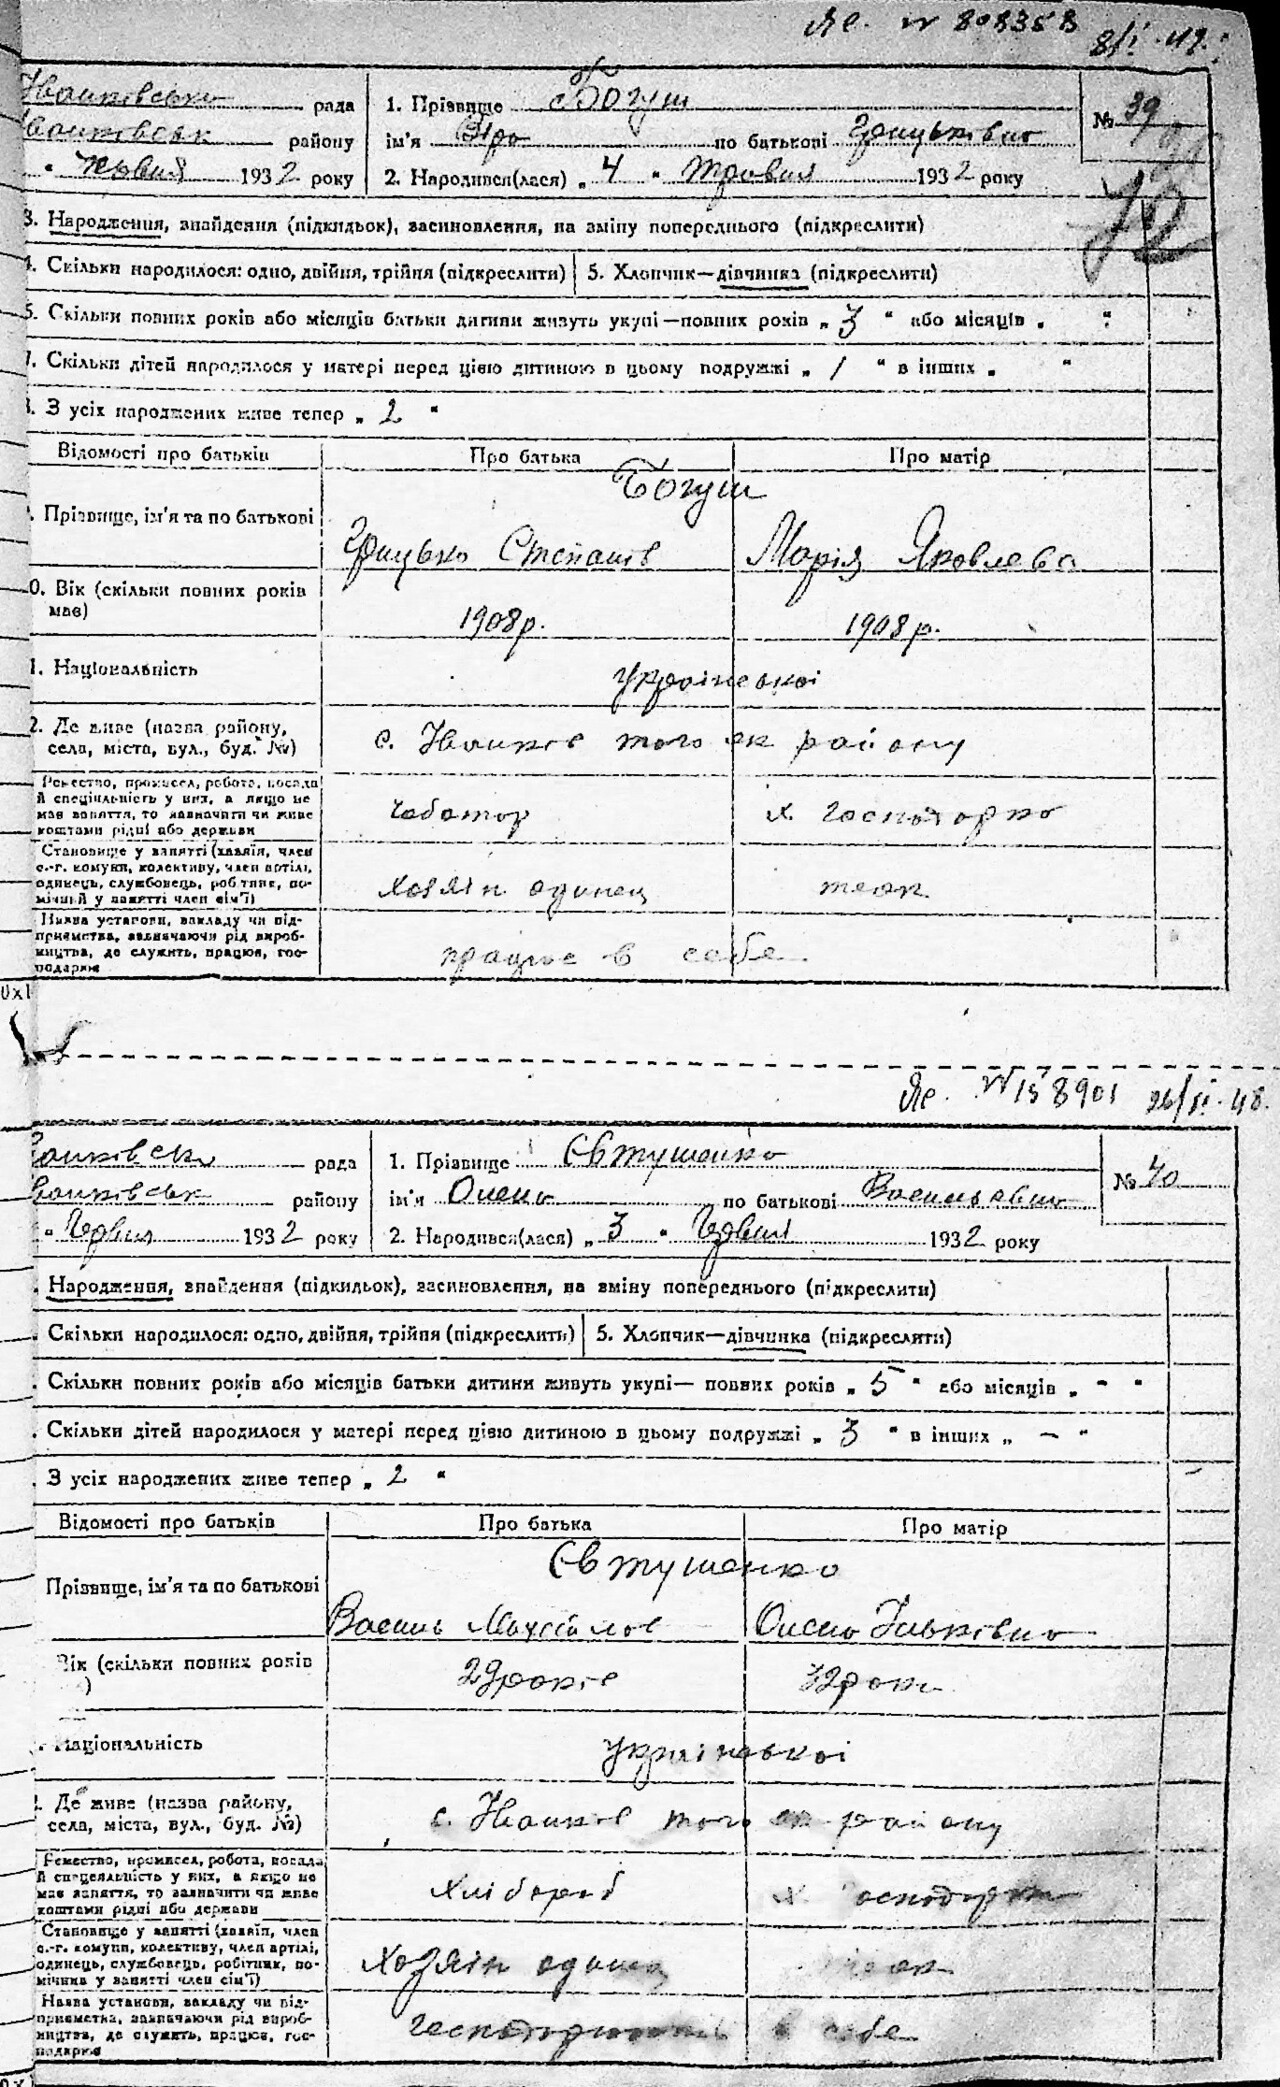 Яе. № 808358 8/I. 49.
рада
1. Прізвище Богуш
№ 39
району
ім'я Віра по батькові Грицьківна
193 2 року
2. Народився(лася) „ 4 " травня 193 2 року
72
3. Народження, знайдення (підкидьок), засиновлення, на зміну попереднього (підкреслити)
4. Скільки народилося: одно, двійня, трійня (підкреслити)
5. Хлопчик—дівчинка (підкреслити)
6. Скільки повних років або місяців батьки дитини живуть укупі—повних років „ 3 " або місяців „ "
7. Скільки дітей народилося у матері перед цією дитиною в цьому подружжі „ 1 " в інших „ "
8. З усіх народжених живе тепер „ 2 "
Відомості про батьків
Про батька
Про матір
Богуш
Прізвище, ім'я та по батькові
Грицько Степанів
Марія Яковлева
0. Вік (скільки повних років
має)
1908р.
1908р.
1. Національність
української
2. Де живе (назва району,
села, міста, вул., буд. №)
с. Іванків того ж району
Ремество, промисел, робота, посада
й спеціальність у них, а якщо не
має заняття, то зазначити чи живе
коштами рідні або держави
чоботар
х. господарка
Становище у занятті (хазяїн, член
с.-г. комуни, колективу, член артілі,
одинець, службовець, робітник, по-
мічний у занятті член сім'ї)
хазяїн одинец
теж
Назва установи, закладу чи під-
приємства, зазначаючи рід вироб-
ництва, де служить, працює, гос-
подарює
працює в себе
Яе. № 158901 26/II. 48.
рада
1. Прізвище Євтушенко
№ 40
району
ім'я Олена по батькові Васильевна
" Червня 193 2 року
2. Народився(лася) „ 3 " Червня 193 2 року
Народження, знайдення (підкидьок), засиновлення, на зміну попереднього (підкреслити)
Скільки народилося: одно, двійня, трійня (підкреслить)
5. Хлопчик—дівчинка (підкреслити)
Скільки повних років або місяців батьки дитини живуть укупі— повних років „ 5 " або місяців „ - "
Скільки дітей народилося у матері перед цією дитиною в цьому подружжі „ 3 " в інших „ - "
З усіх народжених живе тепер „ 2 "
Відомості про батьків
Про батька
Про матір
Євтушенко
Прізвище, ім'я та по батькові
Василь
Ільківна
Вік (скільки повних років
)
29 років
32 роки
Національність
української
Де живе (назва району,
села, міста, вул., буд. №)
с. Іванків того ж району
Ремество, промисел, робота, посада
й спецеяльність у них, а якщо не
має заняття, то зазначити чи живе
коштами рідні або держави
хлібороб
х. господарка
Становище у занятті (хазяїн, член
с.-г. комуни, колективу, член артілі,
одинець, службовець, робітник, по-
мічник у занятті член сім'ї)
хазяїн
теж
Назва установи, закладу чи під-
приємства, зазначаючи рід вироб-
ництва, де служить, працює, гос-
подарює
в себе